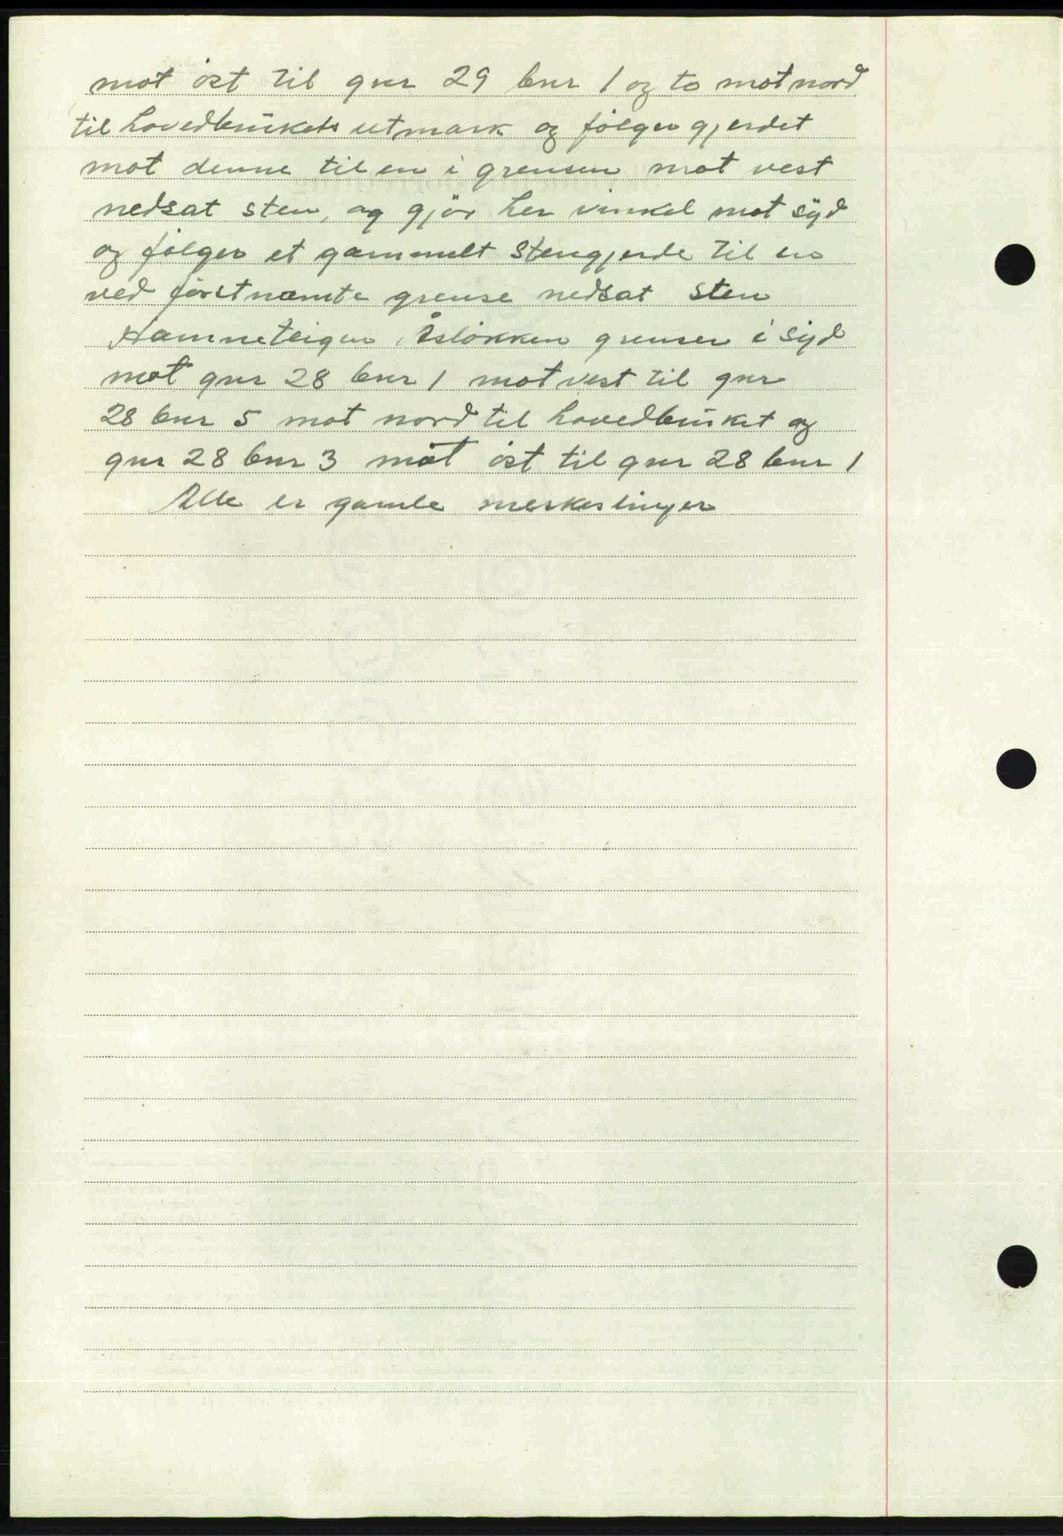 mot öst til gnr 29 bnr 1 og to mot nord
til hovedbrukets utmark og følger gjerdet
mot denne til en i grensen mot vest
nedsat sten, og gjör her vinkel mot syd
og følger et gammelt stengjerde til en
ved förstnæmte grense nedsat sten
Hamneteigen, Åslökken grenser i syd
mot gnr 28 bnr 1 mot vest til gnr
28 bnr 5 mot nord til hovedbruket og
gnr 28 bnr 3 mot öst til gnr 28 bnr 1
Alle er gamle merkeslinjer